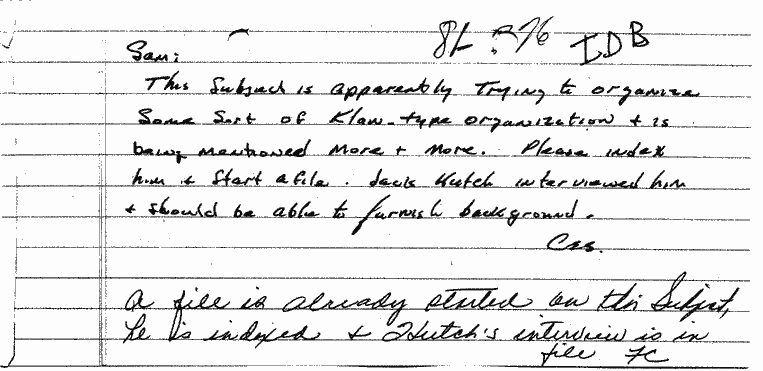 IDB
Sam:
This Subject is apparently Trying to organize
Some Sort of Klan-type organization + is
being mentioned More + More. Please index
him + Start a file. Jack Hutch interviewed him
+ should be able to furnish background.
Cas.
A file is already started on this Subject,
he is indexed & Hutch's interview is in
file FC